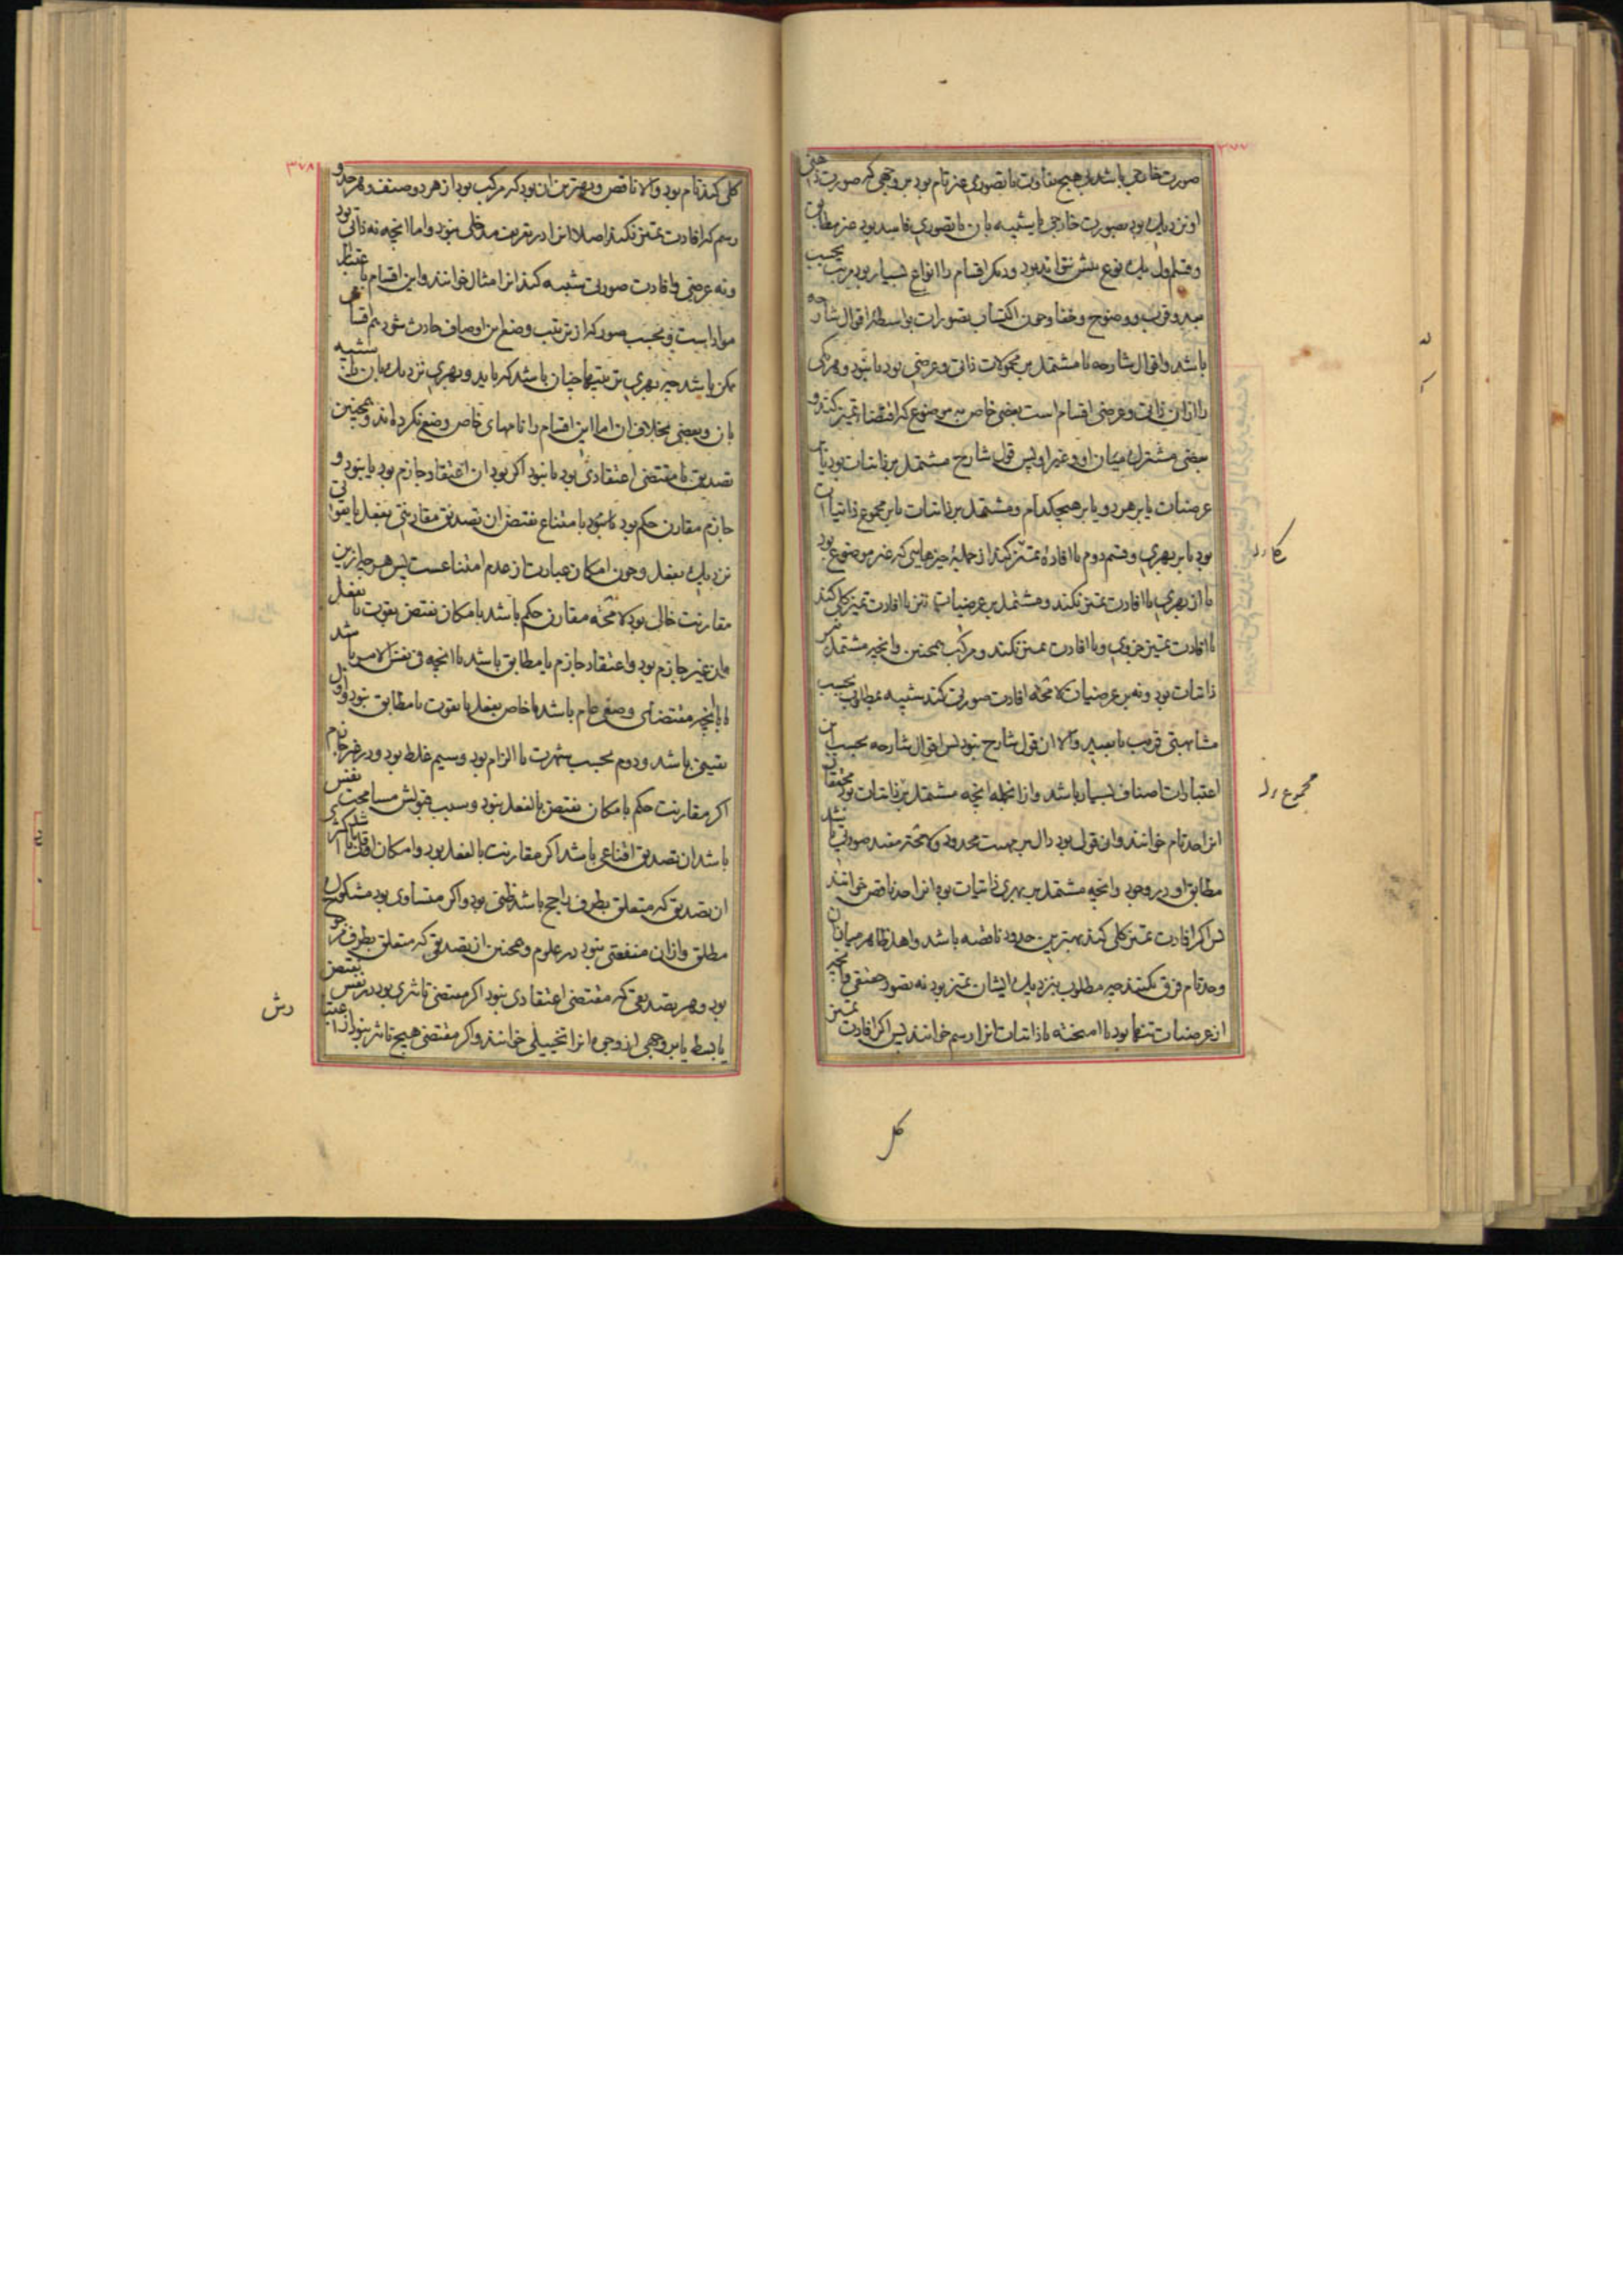 ۳۷۷
صورت خارجی باشد بی هیچ تفاوت یا تصوری غیر تام بود بر وجهی که صورت ذهنی
او نزدیک بود بصورت خارجی یا شبیه بان یا تصوری فاسد بود غیر مطابق
و قسم اول یک نوع بیش نتواند بود و دیگر اقسام را انواع بسیار بود مرتب بحسب
بعد و قرب و وضوح و خفا و چون اکتساب تصورات بواسطه اقوال شارحه
باشد و اقوال شارحه یا مشتمل بر محمولات ذاتی و عرضی بود یا نبود و هر یکی
را از ان ذاتی و عرضی اقسام است بعضی خاص به موضوع که اقتضاء تمیز کند و
بعضی مشترک میان او و غیر او پس قول شارح مشتمل بر ذاتیات بود یا بر
عرضیات یا بر هر دو یا بر هیچکدام و مشتمل بر ذاتیات یا بر مجموع ذاتیات
بود یا بر بهری و قسم دوم یا افاده تمیز کند از جمله چیزهایی که غیر موضوع بود
یا از بهری یا افادت تمیز نکند و مشتمل بر عرضیات نیز یا افادت تمیز کلی کند
یا افادت تمیز جزوی و یا افادت تمیز نکند و مرکب همچنین و انچه مشتمل نه بر
ذاتیات بود و نه بر عرضیات لا محاله افادت صورتی کند شبیه بمطلوب بحسب
مشابهتی قریب یا بعید و الا ان قول شارح نبود پس اقوال شارحه بحسب این
اعتبارات اصناف بسیار باشد و از انجمله انچه مشتمل بر ذاتیات بود محققان
انرا حد تام خوانند و ان قول بود دال بر ماهیت محدود و لا محاله مفید صورتی باشد
مطابق او در وجود و انچه مشتمل بر بهری ذاتیات بود انرا حد ناقص خوانند
پس اگر افادت تمیز کلی کند بهترین حدود ناقصه باشد و اهل ظاهر میان ان
و حد تام فرق نکنند چه مطلوب بنزدیک ایشان تمیز بود نه تصور حقیقی و انچه
از عرضیات تنها بود یا امیخته با ذاتیات انرا رسم خوانند پس اگر افادت تمیز
کل
مجموع
۳۷۸
کلی کند تام بود و الا ناقص و بهترین ان بود که مرکب بود از هر دو صنف و هر حد و
رسم که افادت تمیز نکند اصلا انرا در تعریف مدخلی نبود و اما انچه نه ذاتی بود
و نه عرضی و افادت صورتی شبیه کند انرا مثال خوانند و این اقسام باعتبار
مواد است و بحسب صور که از ترتیب و وضع این اوصاف حادث شود هم اقسام
ممکن باشد چه بهری ترتیبها چنان باشد که باید و بهری نزدیک بان یا شبیه
بان و بعضی بخلاف ان اما این اقسام را نامهای خاص وضع نکرده اند و همچنین
تصدیق یا مقتضی اعتقادی بود یا نبود اگر بود ان اعتقاد جازم بود یا نبود و
جازم مقارن حکم بود یا نبود بامتناع نقیض ان تصدیق مقارنتی بفعل یا بقوتی
نزدیک بفعل و چون امکان عبارت از عدم امتناعست پس هر چه ازین
مقارنت خالی بود لا محاله مقارن حکم باشد بامکان نقیض بقوت یا بفعل
غیر جازم بود و اعتقاد جازم یا مطابق باشد با انچه فی نفس الامر باشد
یا با انچه مقتضای وضعی عام باشد یا خاص بفعل یا بقوت یا مطابق نبود و اول
یقینی باشد و دوم بحسب شهرت یا الزام بود و سیم غلط بود و در غیر جازم
اگر مقارنت حکم بامکان نقیض بالفعل نبود و بسبب قبولش مسامحت نفس
باشد ان تصدیق اقناعی باشد اگر مقارنت بالفعل بود و امکان اقل باشد یا اکثری
ان تصدیق که متعلق بطرف راجح باشد ظنی بود و اگر متساوی بود مشکوک
مطلق و ازان منفعتی نبود در علوم و همچنین از تصدیق که متعلق بطرف مرجوح
بود و هر تصدیقی که مقتضی اعتقادی نبود اگر مقتضی تاثری بود در نفس بقبض
یا بسط یا بر وجهی از وجوه انرا تخییلی خوانند و اگر مقتضی هیچ تاثر نبود از اعتبار